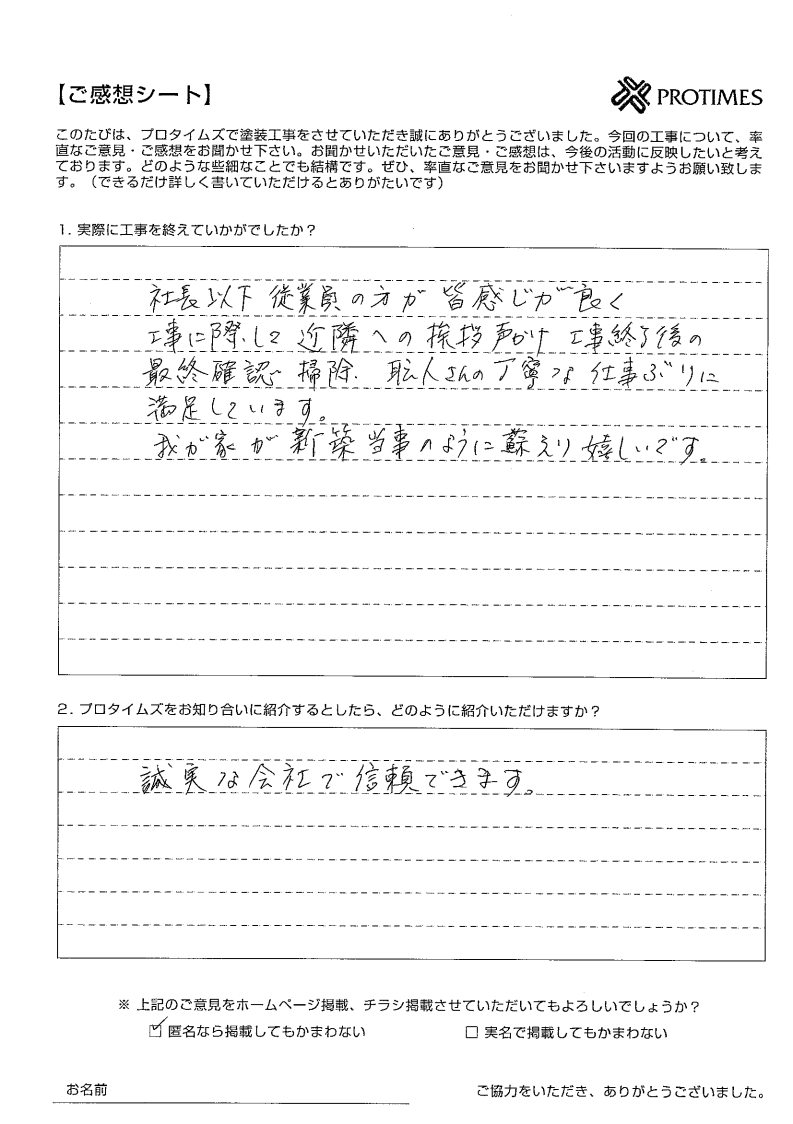 【ご感想シート】
PROTIMES
このたびは、プロタイムズで塗装工事をさせていただき誠にありがとうございました。今回の工事について、率
直なご意見・ご感想をお聞かせ下さい。お聞かせいただいたご意見・ご感想は、今後の活動に反映したいと考え
ております。どのような些細なことでも結構です。ぜひ、率直なご意見をお聞かせ下さいますようお願い致しま
す。（できるだけ詳しく書いていただけるとありがたいです）
1. 実際に工事を終えていかがでしたか？
社長以下 従業員の方が 皆感じが良く
工事に際して 近隣への挨拶声がけ 工事終了後の
最終確認 掃除. 職人さんの丁寧な仕事ぶりに
満足しています。
我が家が新築当事のように蘇えり嬉しいです。
2. プロタイムズをお知り合いに紹介するとしたら、どのように紹介いただけますか？
誠実な会社で信頼できます。
※ 上記のご意見をホームページ掲載、チラシ掲載させていただいてもよろしいでしょうか？
☑ 匿名なら掲載してもかまわない □ 実名で掲載してもかまわない
お名前 ご協力をいただき、ありがとうございました。